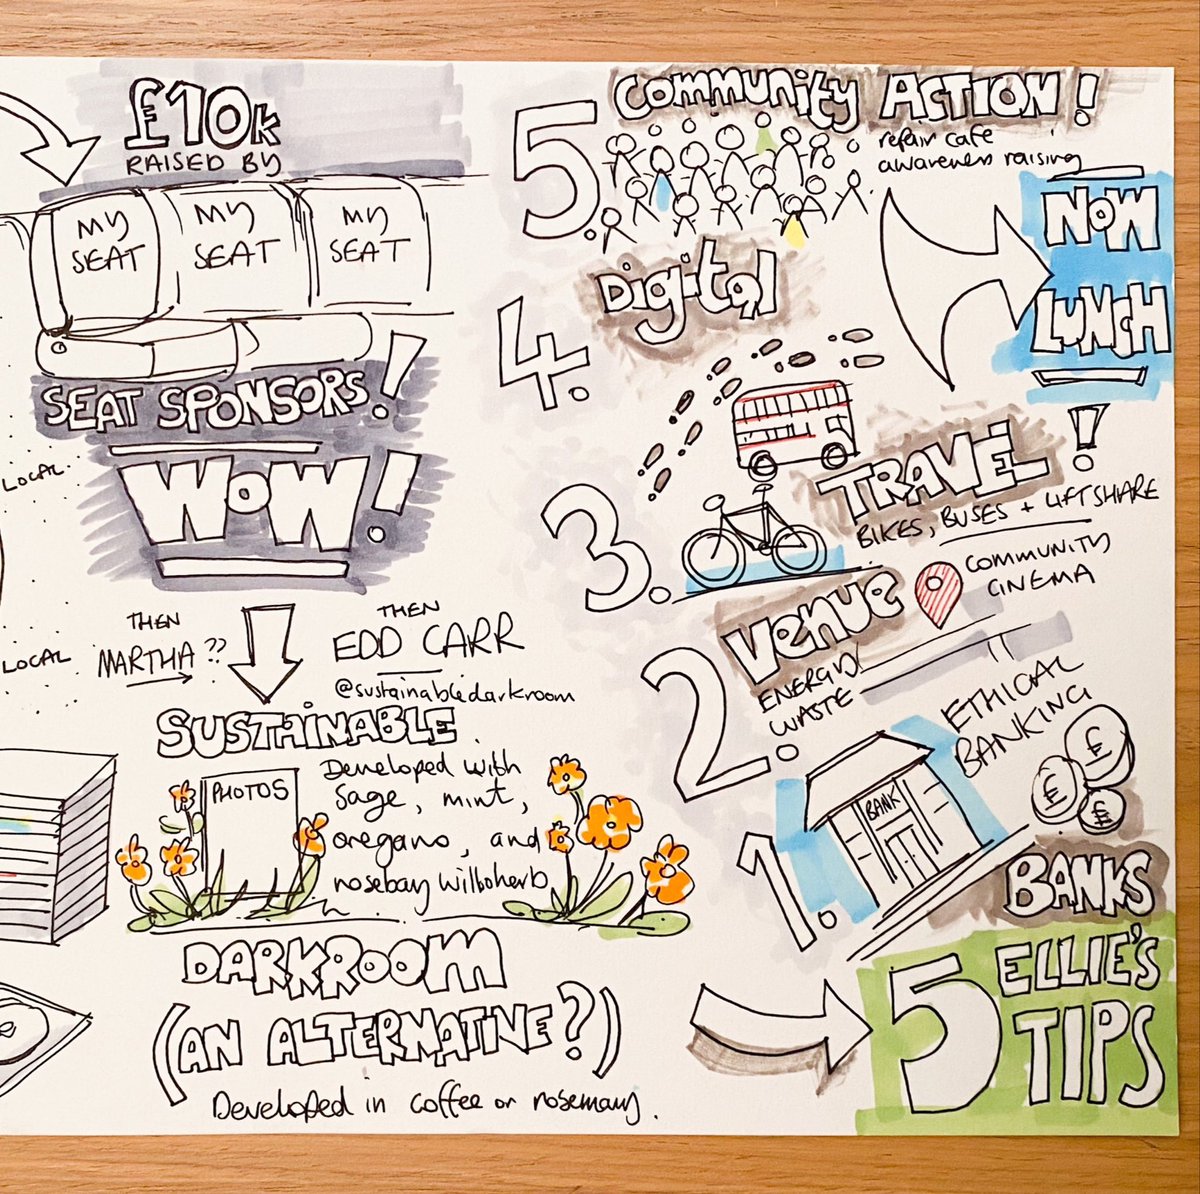 £10k
RAISED BY
MY SEAT
MY SEAT
MY SEAT
SEAT SPONSORS!
WOW!
LOCAL.
LOCAL
THEN
MARTHA??
THEN
EDD CARR
@sustainabledarkroom
SUSTAINABLE
PHOTOS
Developed with
sage, mint,
oregano, and
rosebay willoherb
DARKROOM
(AN ALTERNATIVE?)
Developed in coffee or rosemary.
5
ELLIE'S
TIPS
1.
BANKS
BANK
ETHICAL
BANKING
£
£
£
2.
Venue
ENERGY/
WASTE
COMMUNITY
CINEMA
3.
TRAVEL!
BIKES, BUSES + LIFTSHARE
4.
Digital
5.
Community ACTION!
repair cafe
awareness raising
NOW
LUNCH